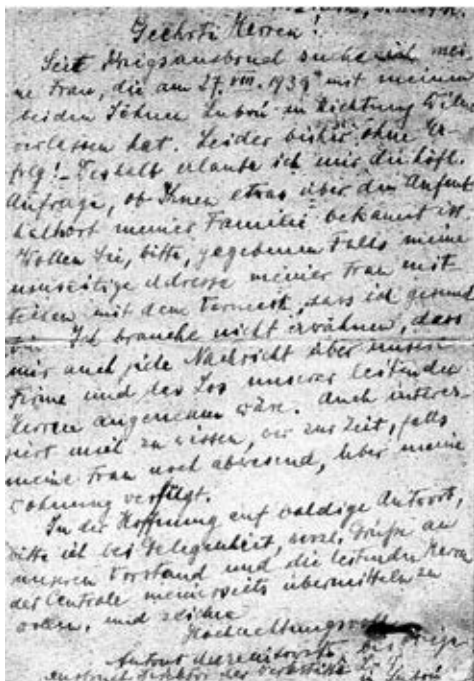 Geehrte Herren!
Seit Kriegsausbruch suche ich mei-
ne Frau, die am 27.VIII.1939 mit meinen
beiden Söhnen Luboń in Richtung Wilno
verlassen hat. Leider bisher ohne Er-
folg! - Deshalb erlaube ich mir die höfl.
Anfrage, ob Ihnen etwas über den Aufent-
halt­ort meiner Familie bekannt ist.
Wollen Sie, bitte, gegebenen Falls meine
umseitige Adresse meiner Frau mit-
teilen mit dem Vermerk, dass ich gesund
bin. Ich brauche nicht erwähnen, dass
mir auch jede Nachricht über unsere
Firma und das Los unserer leitenden
Herren angenehm wäre. Auch interes-
siert mich zu wissen, wer zur Zeit, falls
meine Frau noch abwesend, über meine
Wohnung verfügt.
In der Hoffnung auf baldige Antwort,
bitte ich bei Gelegenheit, Grüße an
unseren Vorstand und die leitenden Herrn
der Centrale meinerseits übermitteln zu
wollen, und zeichne
Hochachtungsvoll
in Luboń